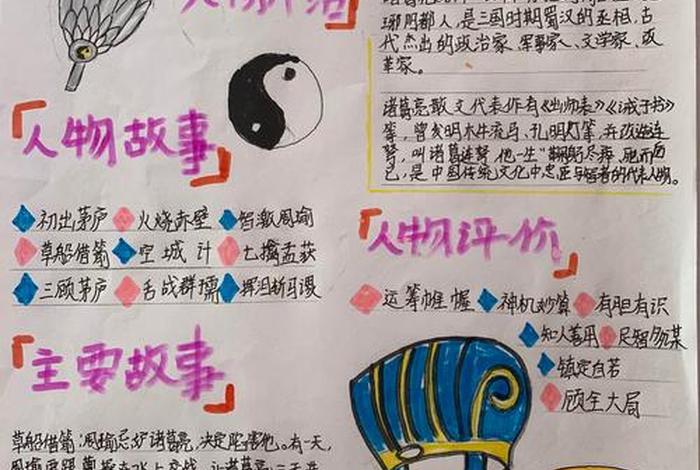 琊阳都人,是三国时期蜀汉的丞相,古
代杰出的政治家、军事家、文学家、改
革家。
诸葛亮散文代表作有《出师表》《诫子书》
等,曾发明木牛流马、孔明灯等,并改进连
弩,叫诸葛连弩。他一生"鞠躬尽瘁,死而后
已,是中国传统文化中忠臣与智者的代表人物。
人物故事
初出茅庐 火烧赤壁 智激周瑜
草船借箭 空城计 七擒孟获
三顾茅庐 舌战群儒 挥泪斩马谡
人物评价
运筹帷幄 神机妙算 有胆有识
知人善用 足智多谋
镇定自若
顾全大局
主要故事
草船借箭:周瑜忌妒诸葛亮,决定陷害他。有一天,